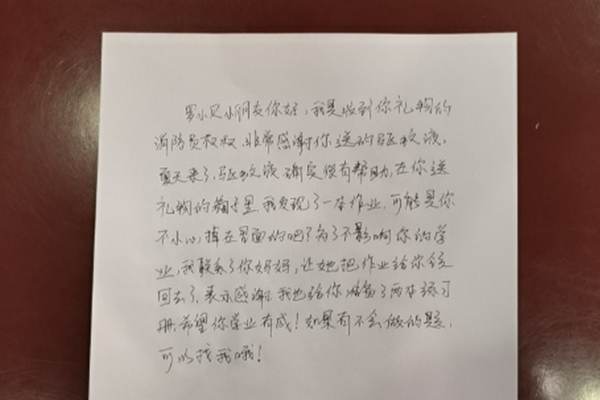 罗小贝小朋友你好，我是收到你礼物的
消防员叔叔，非常感谢你送的驱蚊液，
夏天来了，驱蚊液确实很有帮助，在你送
礼物的箱子里，我发现了一本作业，可能是你
不小心，掉在里面的吧？为了不影响你的学
业，我联系了你妈妈，让她把作业给你送
回去了，表示感谢，我也给你准备了两本练习
册，希望你学业有成！如果有不会做的题，
可以找我哦！